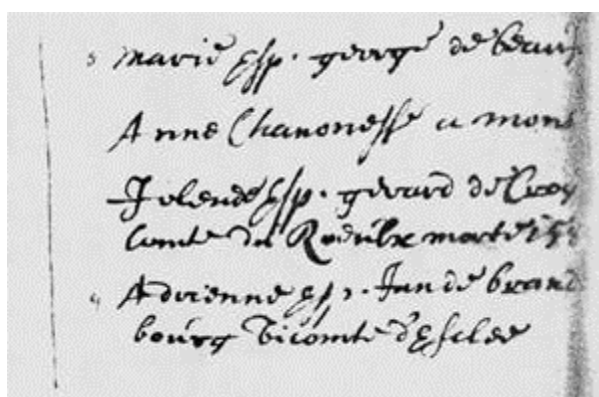 3 marie esp. george de beau
Anne Chanonesse a mons
Jolende esp. gerard de Croy
Comte du Roeulx morte 15
4 Adrienne esp. Jan de brand
bourg Vicomte d'Esclee